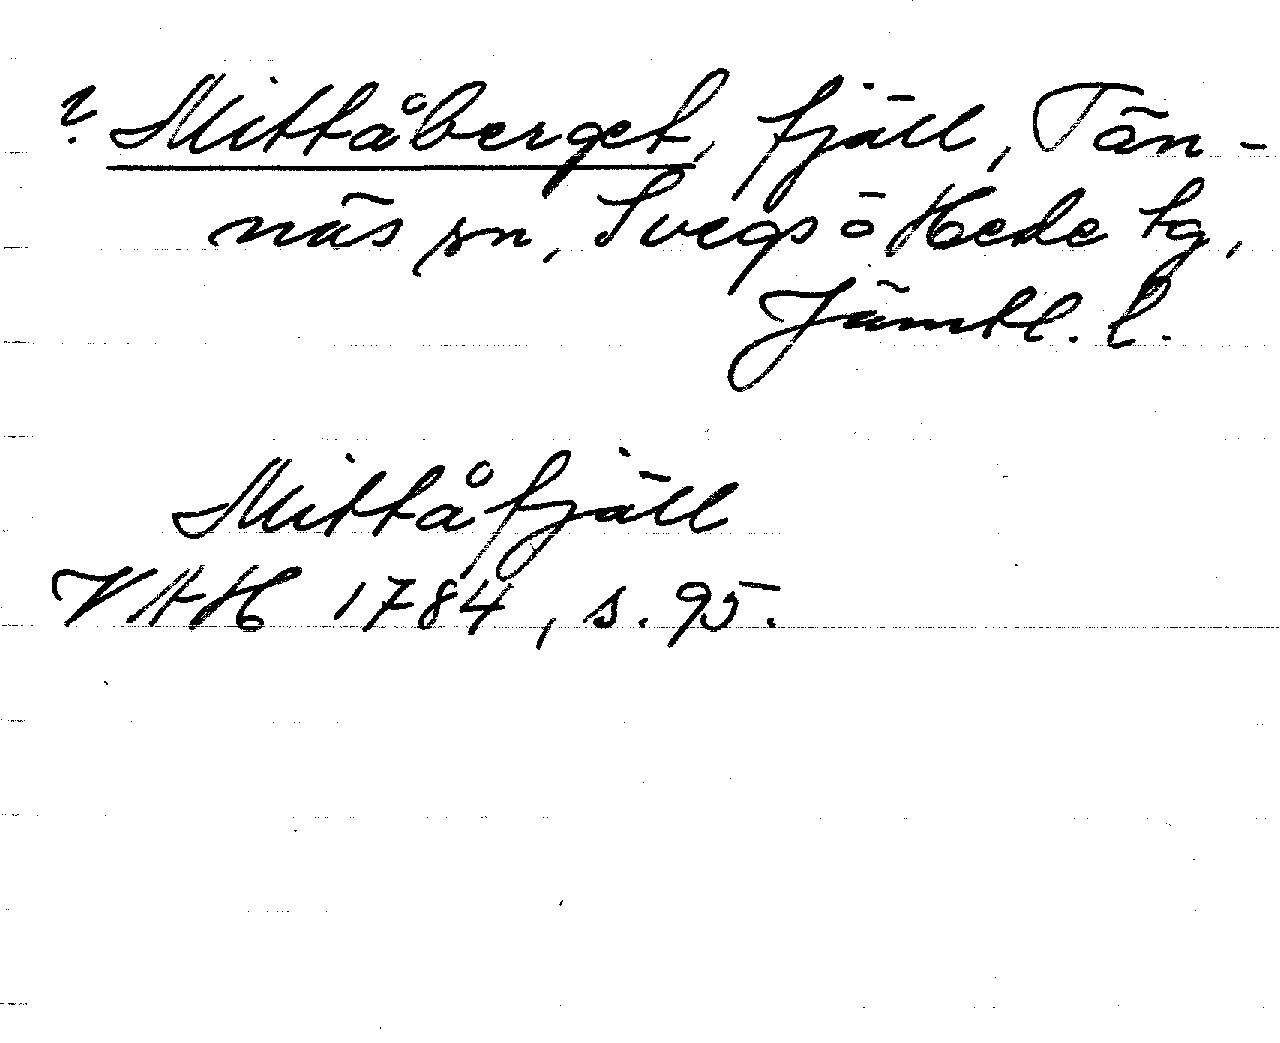 ? Mittåberget, fjäll, Tän-
näs sn, Svegs o Hede tg,
Jämtl. l.
Mittåfjäll
VAH 1784, s. 95.